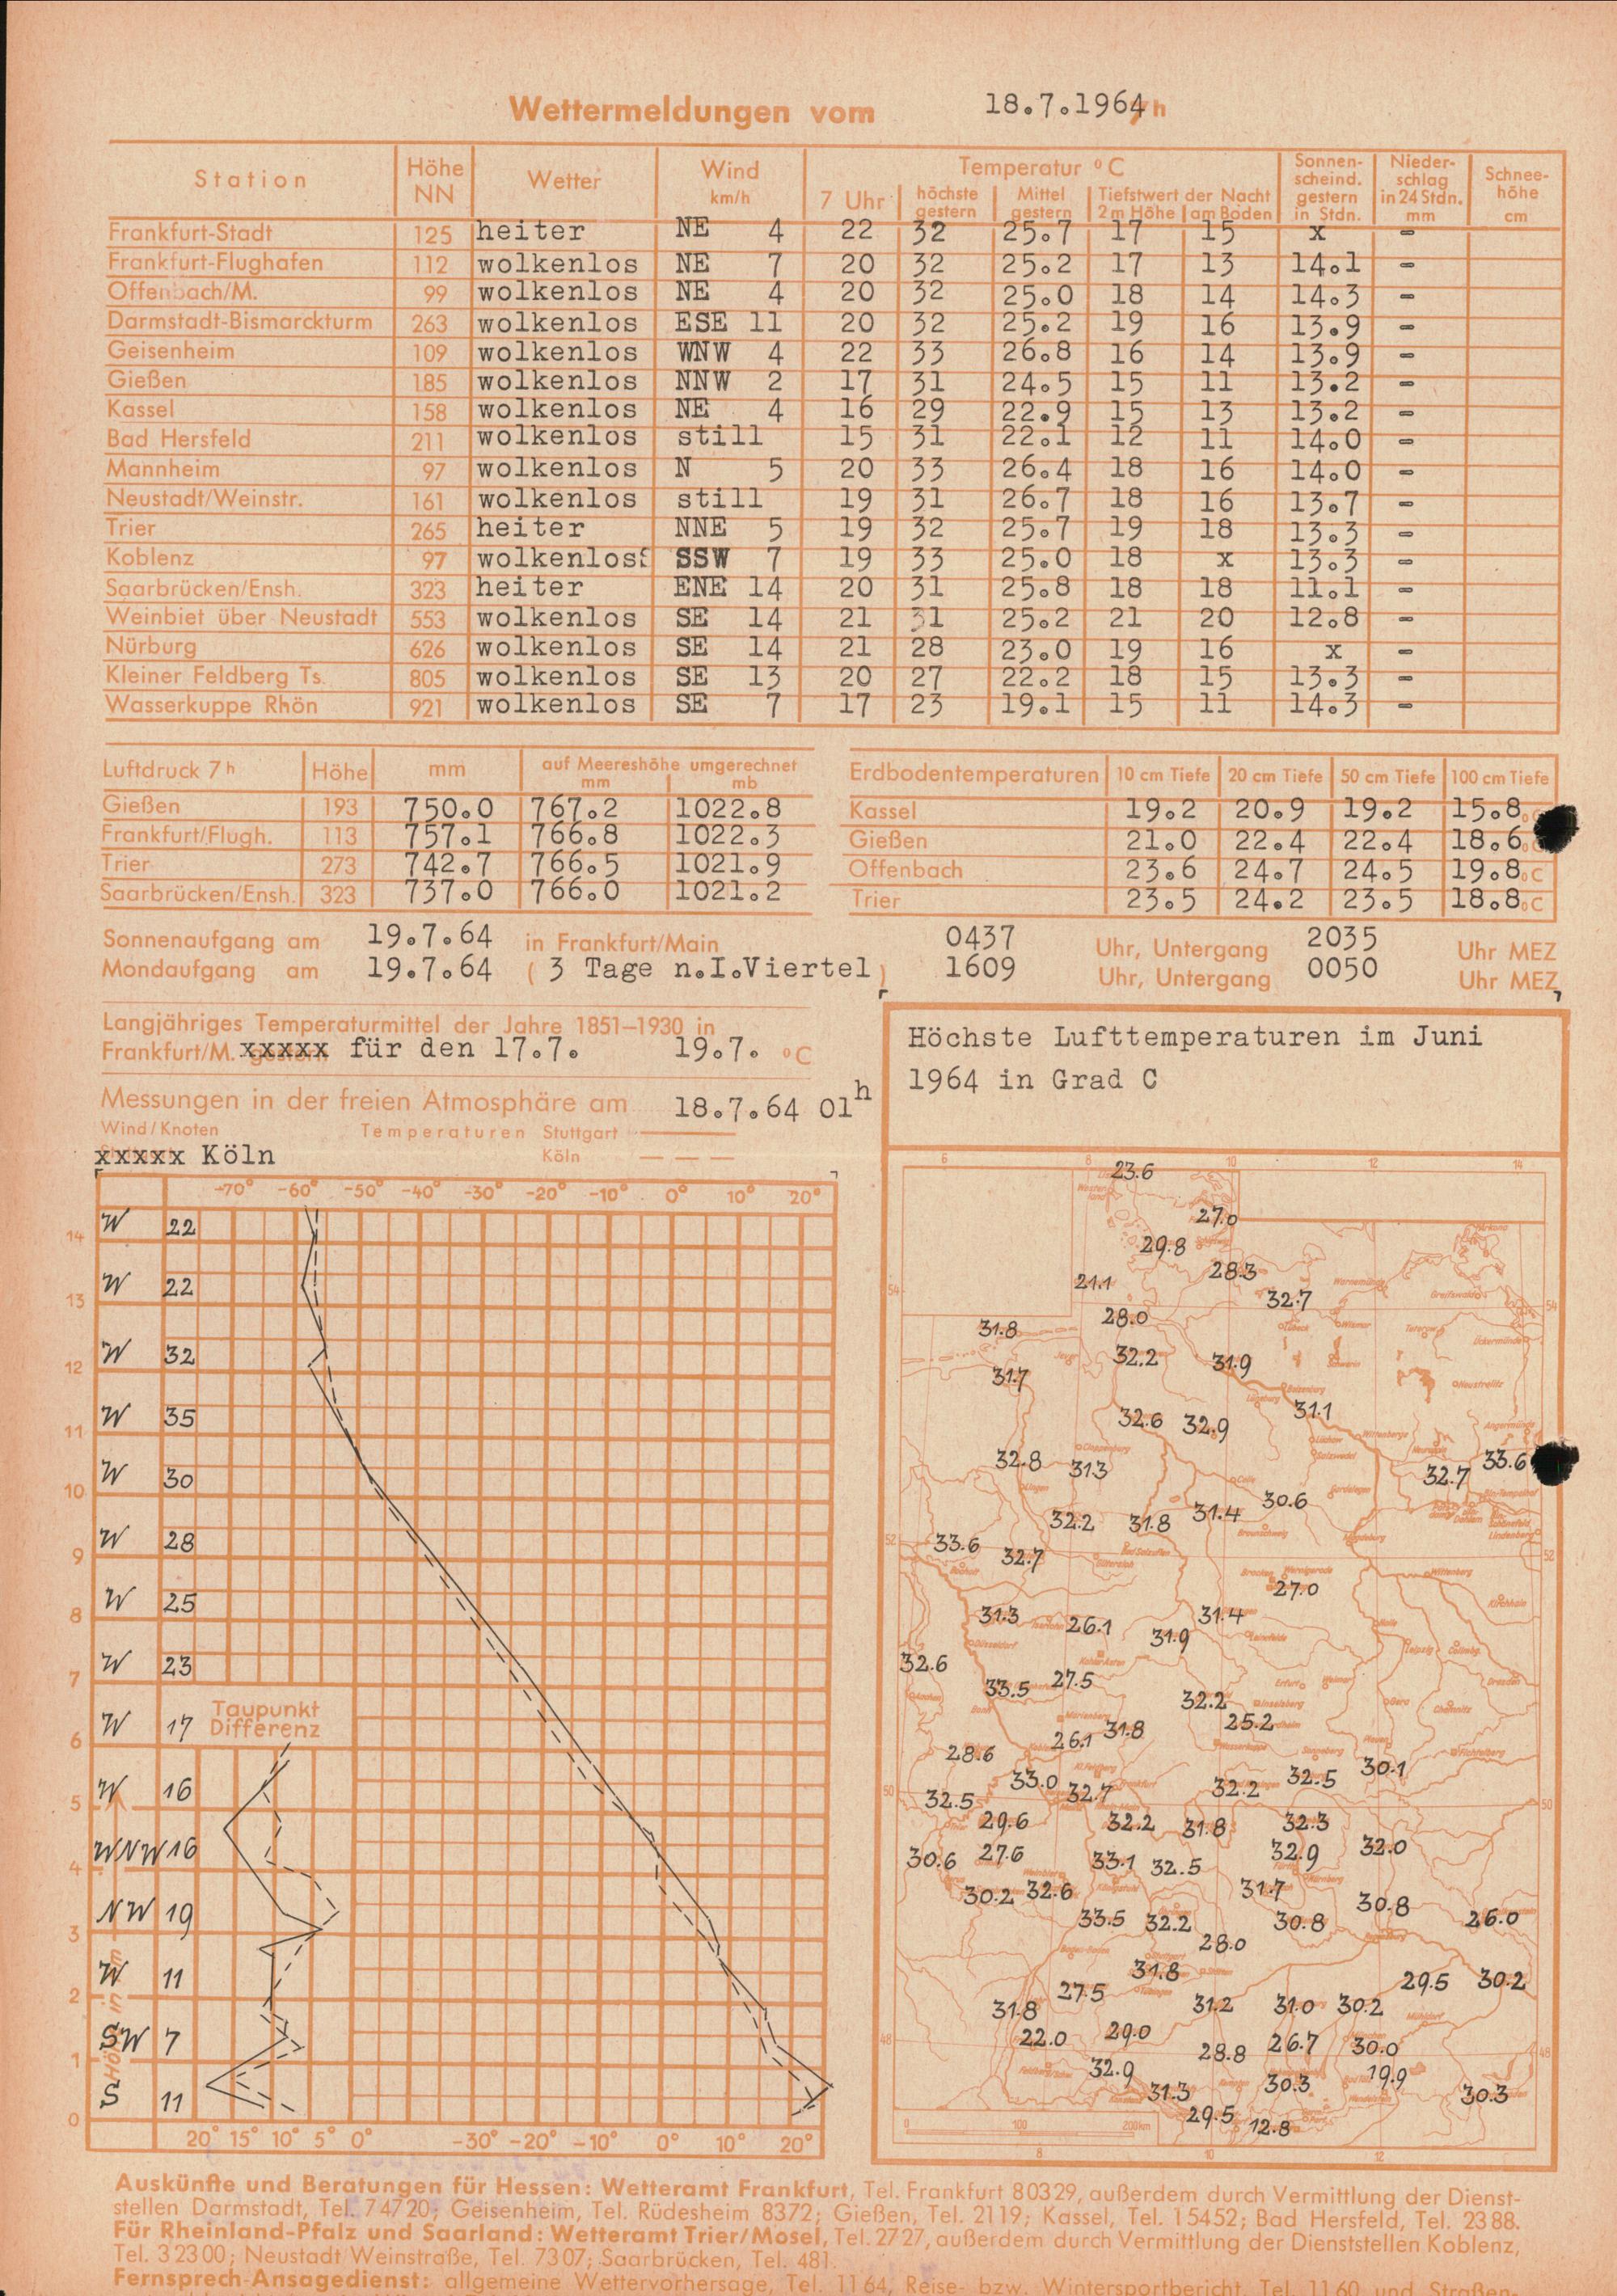 Wettermeldungen vom 18.7.1964 7h
Station Höhe NN Wetter Wind km/h Temperatur °C Sonnenscheind. gestern in Stdn. Niederschlag in 24 Stdn. mm Schneehöhe cm
7 Uhr höchste gestern Mittel gestern Tiefstwert der Nacht 2 m Höhe am Boden
Frankfurt-Stadt 125 heiter NE 4 22 32 25.7 17 15 x -
Frankfurt-Flughafen 112 wolkenlos NE 7 20 32 25.2 17 13 14.1 -
Offenbach/M. 99 wolkenlos NE 4 20 32 25.0 18 14 14.3 -
Darmstadt-Bismarckturm 263 wolkenlos ESE 11 20 32 25.2 19 16 13.9 -
Geisenheim 109 wolkenlos WNW 4 22 33 26.8 16 14 13.9 -
Gießen 185 wolkenlos NNW 2 17 31 24.5 15 11 13.2 -
Kassel 158 wolkenlos NE 4 16 29 22.9 15 13 13.2 -
Bad Hersfeld 211 wolkenlos still 15 31 22.1 12 11 14.0 -
Mannheim 97 wolkenlos N 5 20 33 26.4 18 16 14.0 -
Neustadt/Weinstr. 161 wolkenlos still 19 31 26.7 18 16 13.7 -
Trier 265 heiter NNE 5 19 32 25.7 19 18 13.3 -
Koblenz 97 wolkenlos SSW 7 19 33 25.0 18 x 13.3 -
Saarbrücken/Ensh. 323 heiter ENE 14 20 31 25.8 18 18 11.1 -
Weinbiet über Neustadt 553 wolkenlos SE 14 21 31 25.2 21 20 12.8 -
Nürburg 626 wolkenlos SE 14 21 28 23.0 19 16 x -
Kleiner Feldberg Ts. 805 wolkenlos SE 13 20 27 22.2 18 15 13.3 -
Wasserkuppe Rhön 921 wolkenlos SE 7 17 23 19.1 15 11 14.3 -
Luftdruck 7h Höhe mm auf Meereshöhe umgerechnet mm mb
Gießen 193 750.0 767.2 1022.8
Frankfurt/Flugh. 113 757.1 766.8 1022.3
Trier 273 742.7 766.5 1021.9
Saarbrücken/Ensh. 323 737.0 766.0 1021.2
Erdbodentemperaturen 10 cm Tiefe 20 cm Tiefe 50 cm Tiefe 100 cm Tiefe
Kassel 19.2 20.9 19.2 15.8 °C
Gießen 21.0 22.4 22.4 18.6 °C
Offenbach 23.6 24.7 24.5 19.8 °C
Trier 23.5 24.2 23.5 18.8 °C
Sonnenaufgang am 19.7.64 in Frankfurt/Main 0437 Uhr, Untergang 2035 Uhr MEZ
Mondaufgang am 19.7.64 (3 Tage n.I.Viertel) 1609 Uhr, Untergang 0050 Uhr MEZ
Langjähriges Temperaturmittel der Jahre 1851–1930 in
Frankfurt/M. xxxxx für den 17.7. 19.7. °C
Messungen in der freien Atmosphäre am 18.7.64 01h
Wind/Knoten Temperaturen Stuttgart
xxxxx Köln Köln
-70° -60° -50° -40° -30° -20° -10° 0° 10° 20°
14 W 22
13 W 22
12 W 32
11 W 35
10 W 30
9 W 28
8 W 25
7 W 23
Taupunkt
Differenz
6 W 17
5 W 16
4 WNW 16
3 NW 19
2 W 11
1 SW 7
0 S 11
20° 15° 10° 5° 0° -30° -20° -10° 0° 10° 20°
Höchste Lufttemperaturen im Juni
1964 in Grad C
6 8 10 12 14
23.6
27.0
29.8
28.3
21.1
54 54
32.7
28.0
31.8
32.2 31.9
31.7
31.1
32.6 32.9
32.8 31.3 32.7 33.6
30.6
31.4
32.2 31.8
52 33.6 32.7 52
27.0
31.3 26.1 31.4
31.9
32.6
33.5 27.5
32.2
25.2
26.1 31.8
28.6 30.1
33.0 32.7 32.2 32.5
50 32.5 50
29.6 32.2 31.8 32.3
30.6 27.6 33.1 32.5 32.9 32.0
30.2 32.6 31.7
30.8
33.5 32.2 30.8 26.0
28.0
31.8
27.5 29.5 30.2
31.8 31.2 31.0 30.2
48 22.0 29.0 28.8 26.7 30.0 48
32.9 19.9
31.3 30.3 30.3
29.5 12.8
0 100 200km
8 10 12
Auskünfte und Beratungen für Hessen: Wetteramt Frankfurt, Tel. Frankfurt 80329, außerdem durch Vermittlung der Dienst-
stellen Darmstadt, Tel. 74720; Geisenheim, Tel. Rüdesheim 8372; Gießen, Tel. 2119; Kassel, Tel. 15452; Bad Hersfeld, Tel. 2388.
Für Rheinland-Pfalz und Saarland: Wetteramt Trier/Mosel, Tel. 2727, außerdem durch Vermittlung der Dienststellen Koblenz,
Tel. 32300; Neustadt Weinstraße, Tel. 7307; Saarbrücken, Tel. 481.
Fernsprech-Ansagedienst: allgemeine Wettervorhersage, Tel. 1164, Reise- bzw. Wintersportbericht, Tel. 1160 und Straßen-